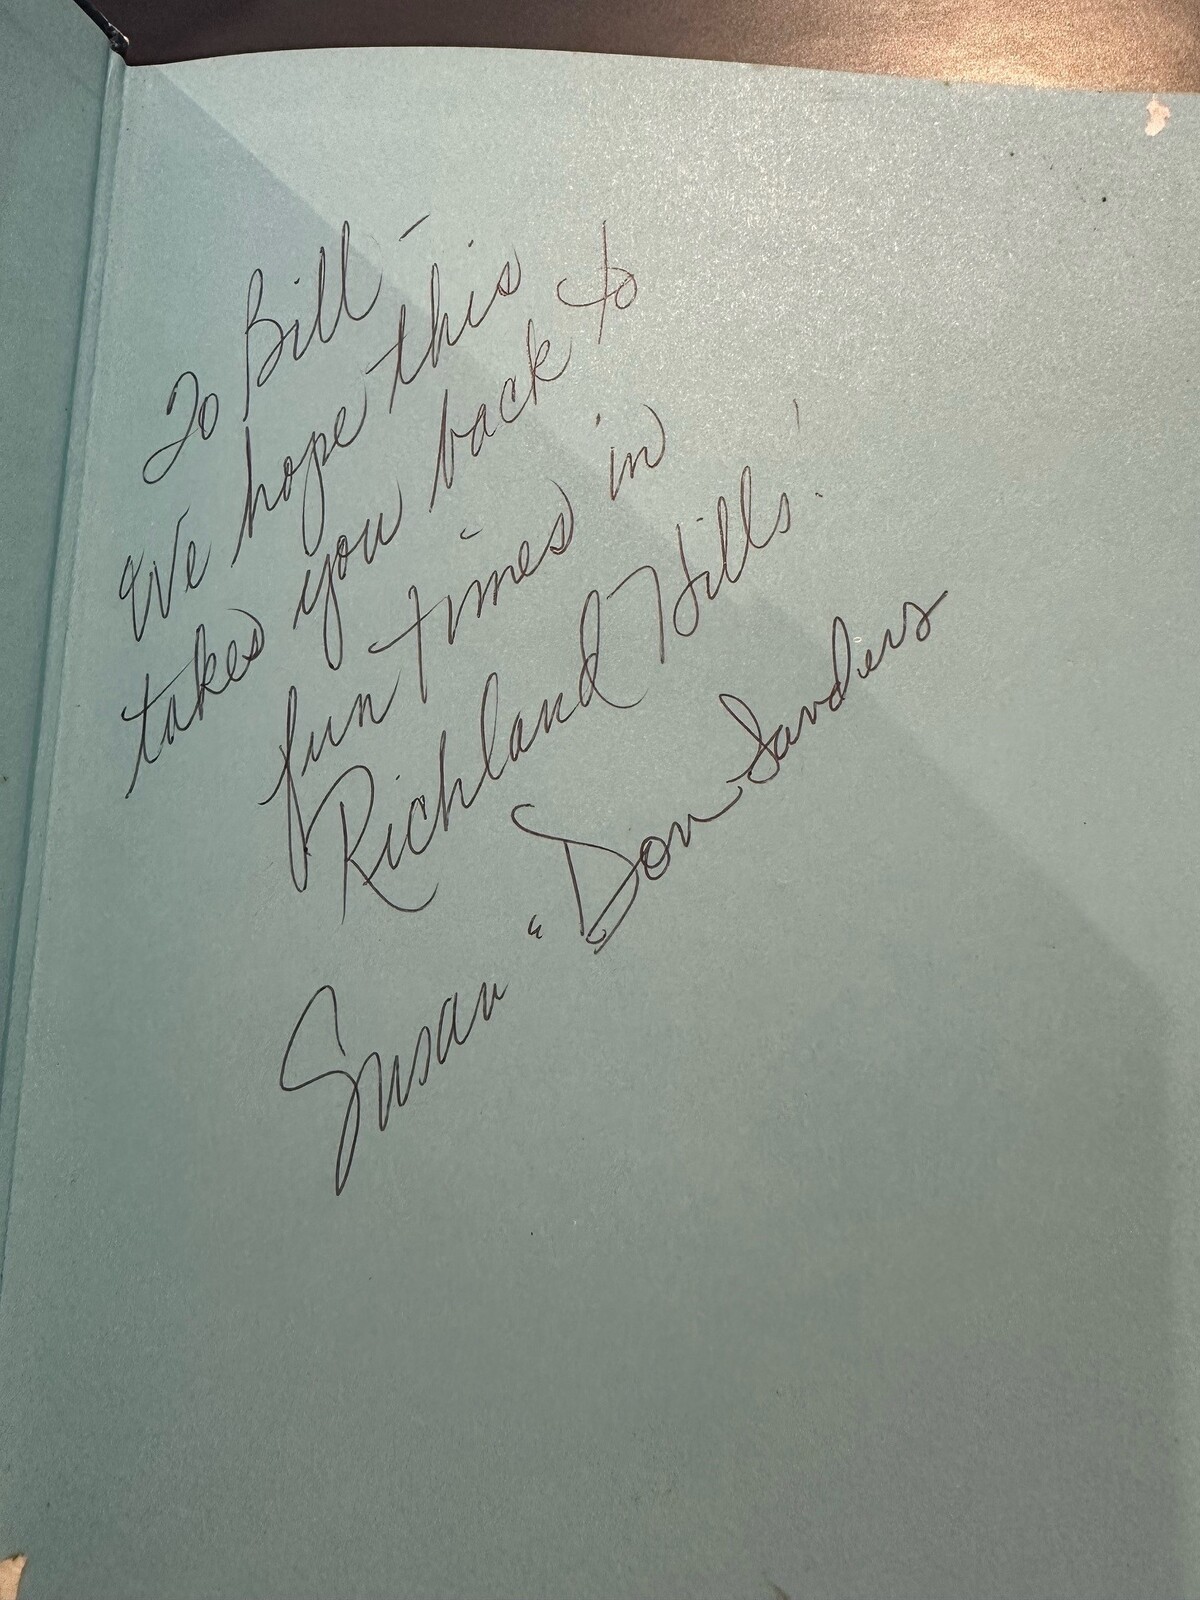 To Bill —
We hope this
takes you back to
fun times in
Richland Hills!
Susan & Don Sanders